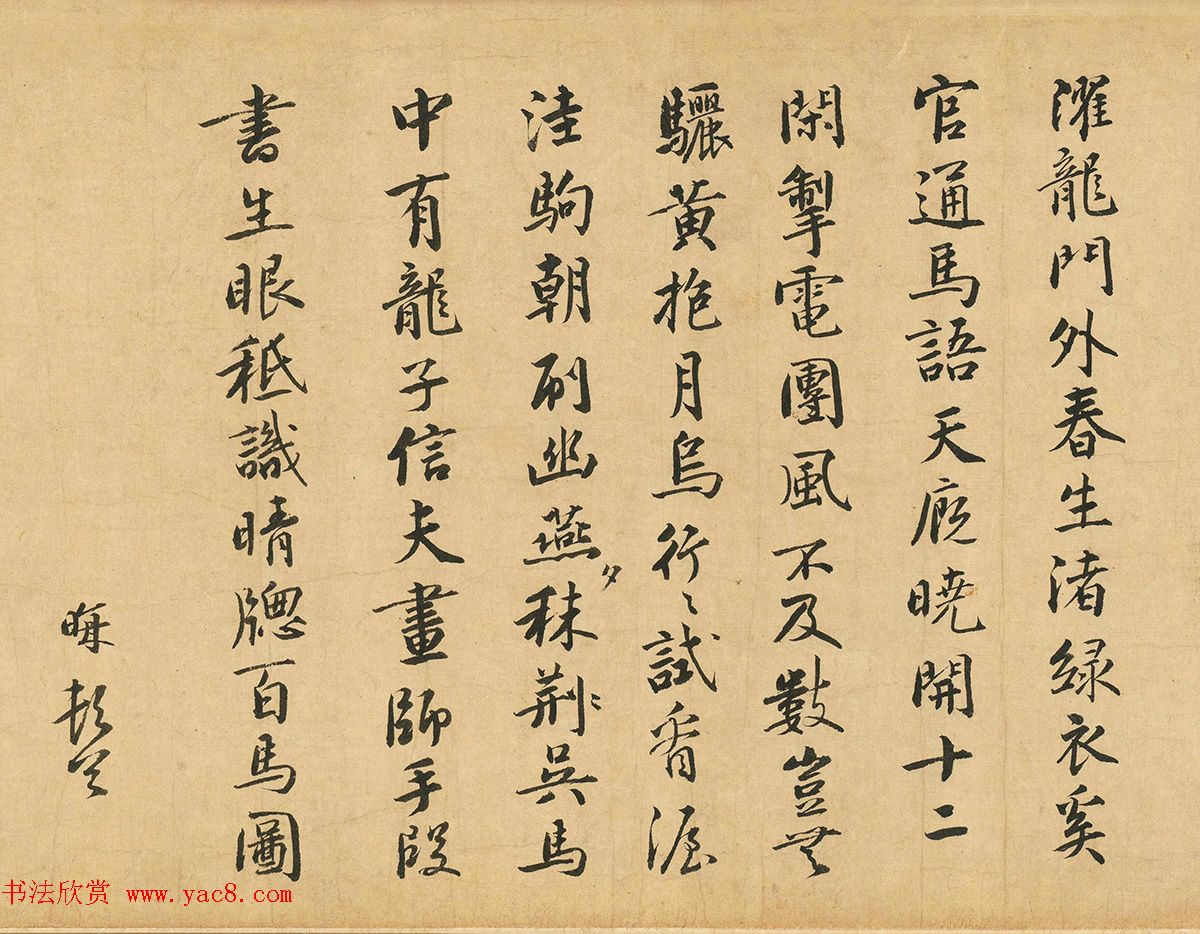 濯龍門外春生渚綠衣奚
官通馬語天廐曉開十二
閑掣電團風不及數豈無
驪黃抱月烏行〻試看渥
洼駒朝刷幽燕夕秣荆〻吳馬
中有龍子信夫畫師手段
書生眼秪識晴牕百馬圖
晦
書法欣赏 www.yac8.com